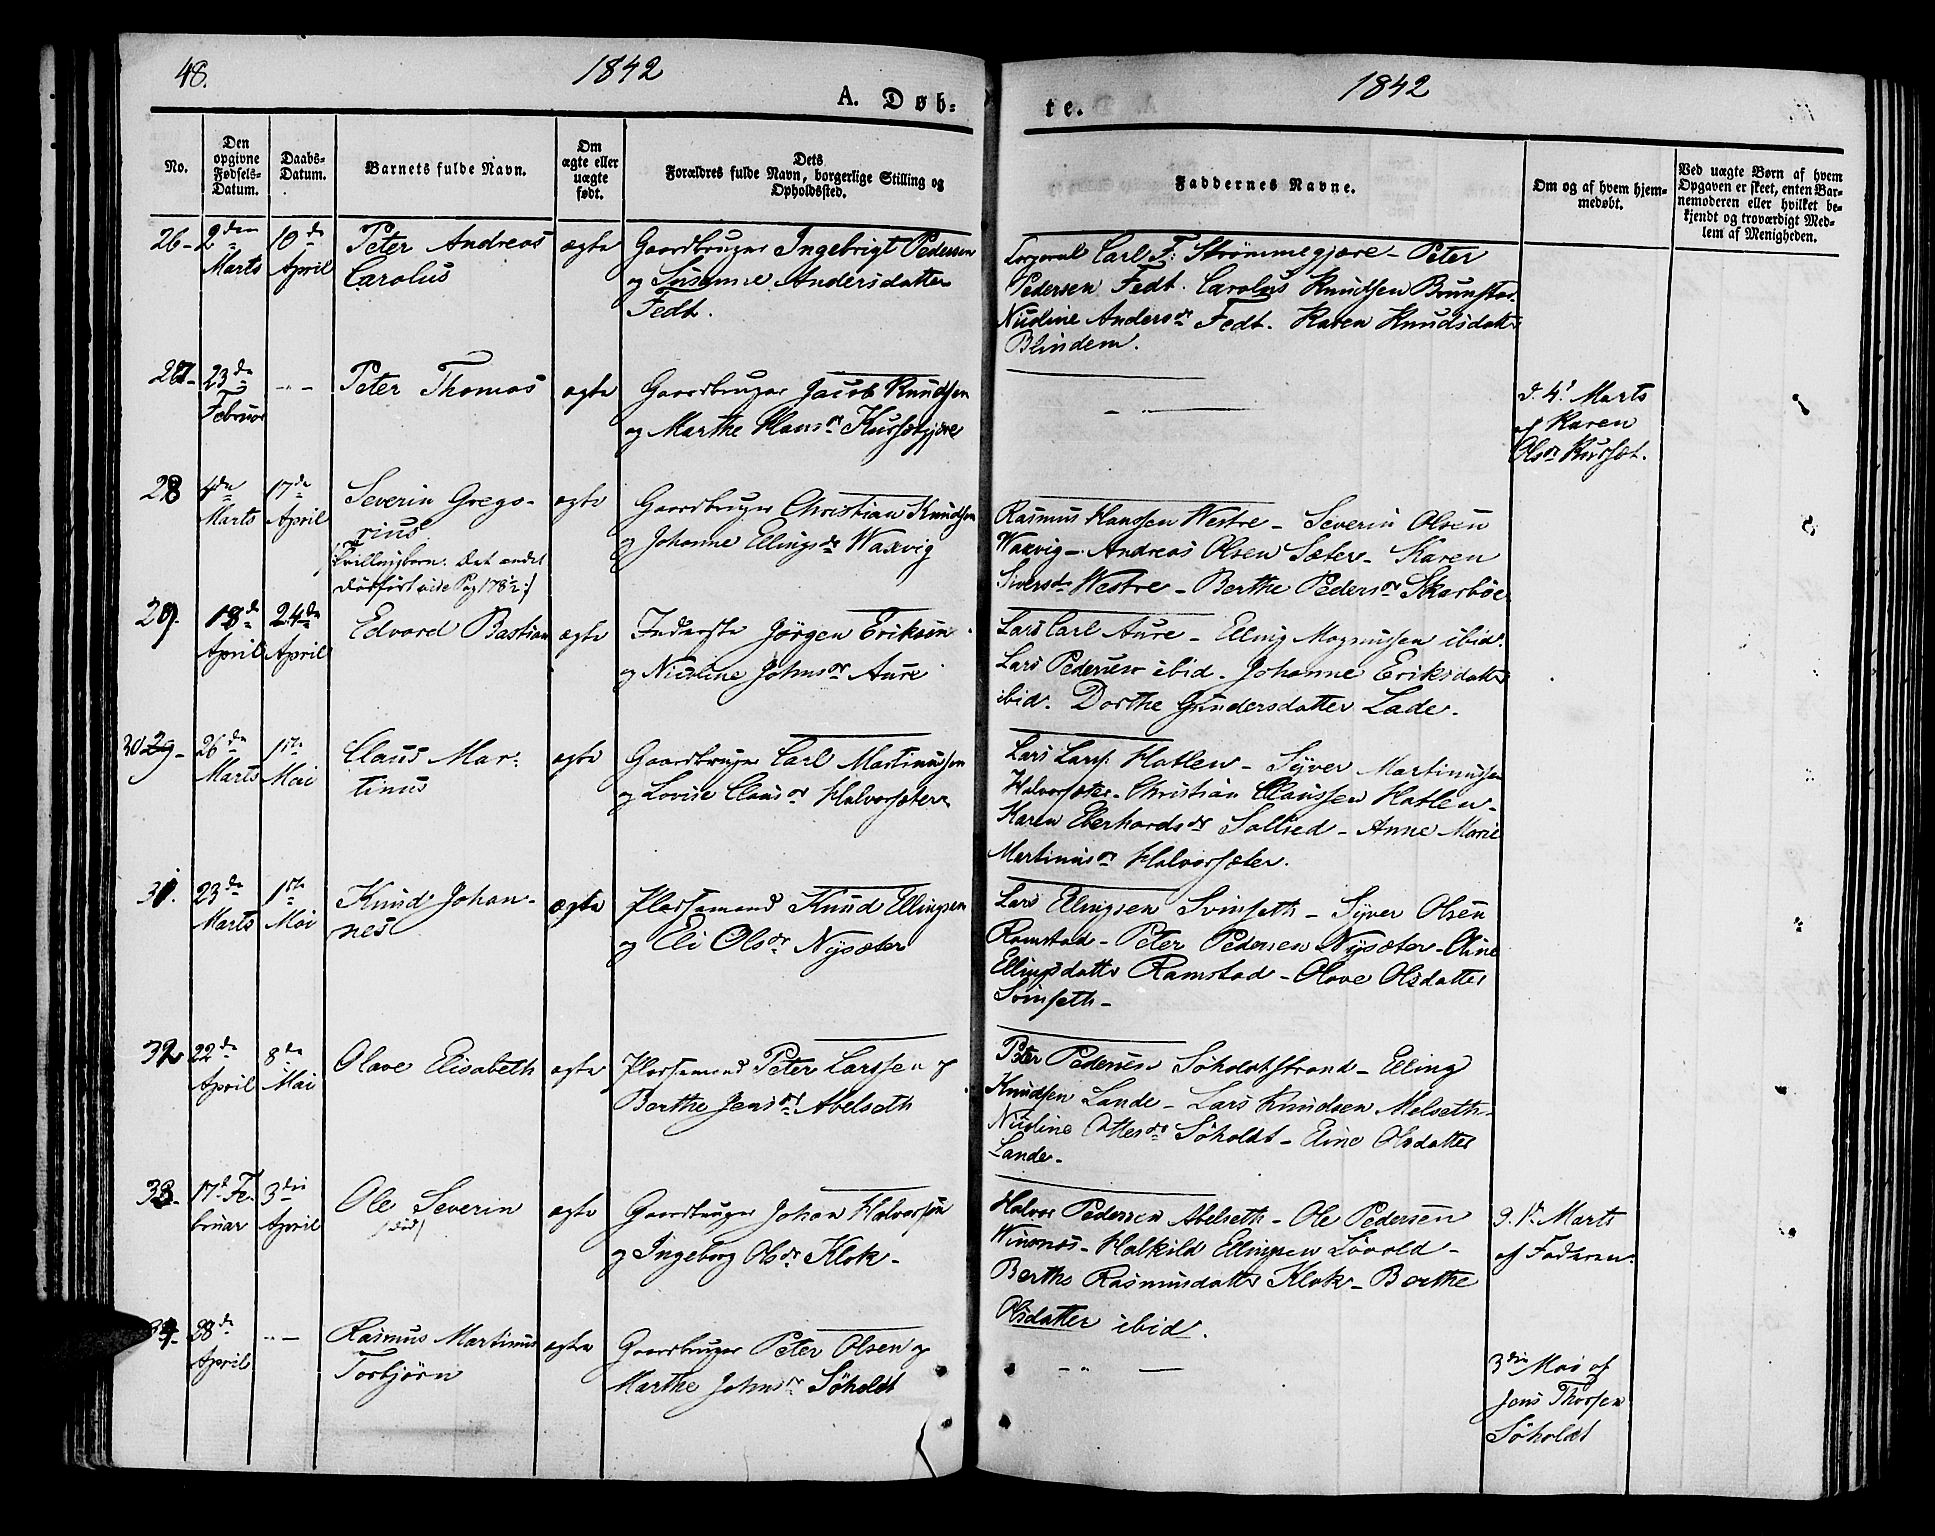 48.
1842
A. Døb-
No.
Den opgivne Fødsels-Datum.
Daabs-Datum.
Barnets fulde Navn.
Om ægte eller uægte født.
Dets Forældres fulde Navn, borgerlige Stilling og Opholdssted.
26- 2den Marts 10de April Peter Andreas Carolus ægte Gaardbruger Ingebrigt Pedersen
og Susanne Andersdatter
Fedt.
27- 23de Februar -"- Peter Thomas ægte Gaardbruger Jacob Knudsen
og Marthe Hansdr Kursetgjere
28 4de Marts 17de April Severin Gregorius ægte Gaardbruger Christian Knudsen
og Johanne Ellingsdr Waxvig
(Tvillingbarn. Det andet
dødfødt vide Pag 178½:)
29. 18de April 24de April Edvard Bastian ægte Inderste Jørgen Eriksen
og Nicoline Johnsdr Aure
30 29- 26de Marts 1ste Mai Claus Martinus ægte Gaardbruger Carl Martinussen
og Lovise Clausdr Halvorsæter
31. 23de Marts 1ste Mai Knud Johannes ægte Pladsemand Knud Ellingsen
og Eli Olsdr Nysæter
32 22de April 8de Mai Olave Elisabeth ægte Pladsemand Peter Larssen og
Berthe Jensdr Abelseth
33- 17de Februar 3die April Ole Severin
(død) ægte Gaardbruger Johan Halvorsen
og Ingeborg Olsdr Klok-
34- 28de April -"- Rasmus Martinus
Torbjørn ægte Gaardbruger Peter Olsen og
Marthe Johnsdr Søholdt
1842
te.
Faddernes Navne.
Om og af hvem hjemmedøbt.
Ved uægte Børn af hvem
Opgaven er skeet, enten Bar-
nemoderen eller hvilket be-
kjendt og troværdigt Med-
lem af Menigheden.
Corporal Carl F: Strømmegjære- Peter
Pedersen Fedt. Carolus Knudsen Brunstad
Nicoline Andersdr Fedt. Karen Knudsdatter
Blindem.
d. 4de Marts
af Karen
Olsdr Kursæt.
Rasmus Hanssen Westre- Severin Olsen
Waxvig- Andreas Olsen Sæter- Karen
Siversdr Westre- Berthe Pedersdr Skarbøe
Lars Carl Aure- Elling Magnussen ibid.
Lars Pedersen ibid. Johanne Eriksdatter
ibid. Dorthe Gundersdatter Lade.
Lars Larss. Hatlen- Syver Martinussen
Halvorsæter- Christian Claussen Hatlen-
Karen Eberhardsdr Sollied- Anne Marie
Martinusdr Halvorsæter.
Lars Ellingsen Svinseth- Syver Olsen
Ramstad- Peter Pedersen Nysæter- Oline
Ellingsdatter Ramstad- Olave Olsdatter
Svinseth-
Peter Pedersen Søholdtstrand- Elling
Knudsen Lande- Lars Knudsen Melseth-
Nicoline Ottesdr Søholdt- Eline Olsdatter
Lande-
Halvor Pedersen Abelseth- Ole Pedersen
Winonæs- Halkild Ellingsen Løvold-
Berthe Rasmusdatter Klok- Berthe
Olsdatter ibid.
d. 1ste Marts
af Faderen.
3die Mai af
Jens Thorsen
Søholdt